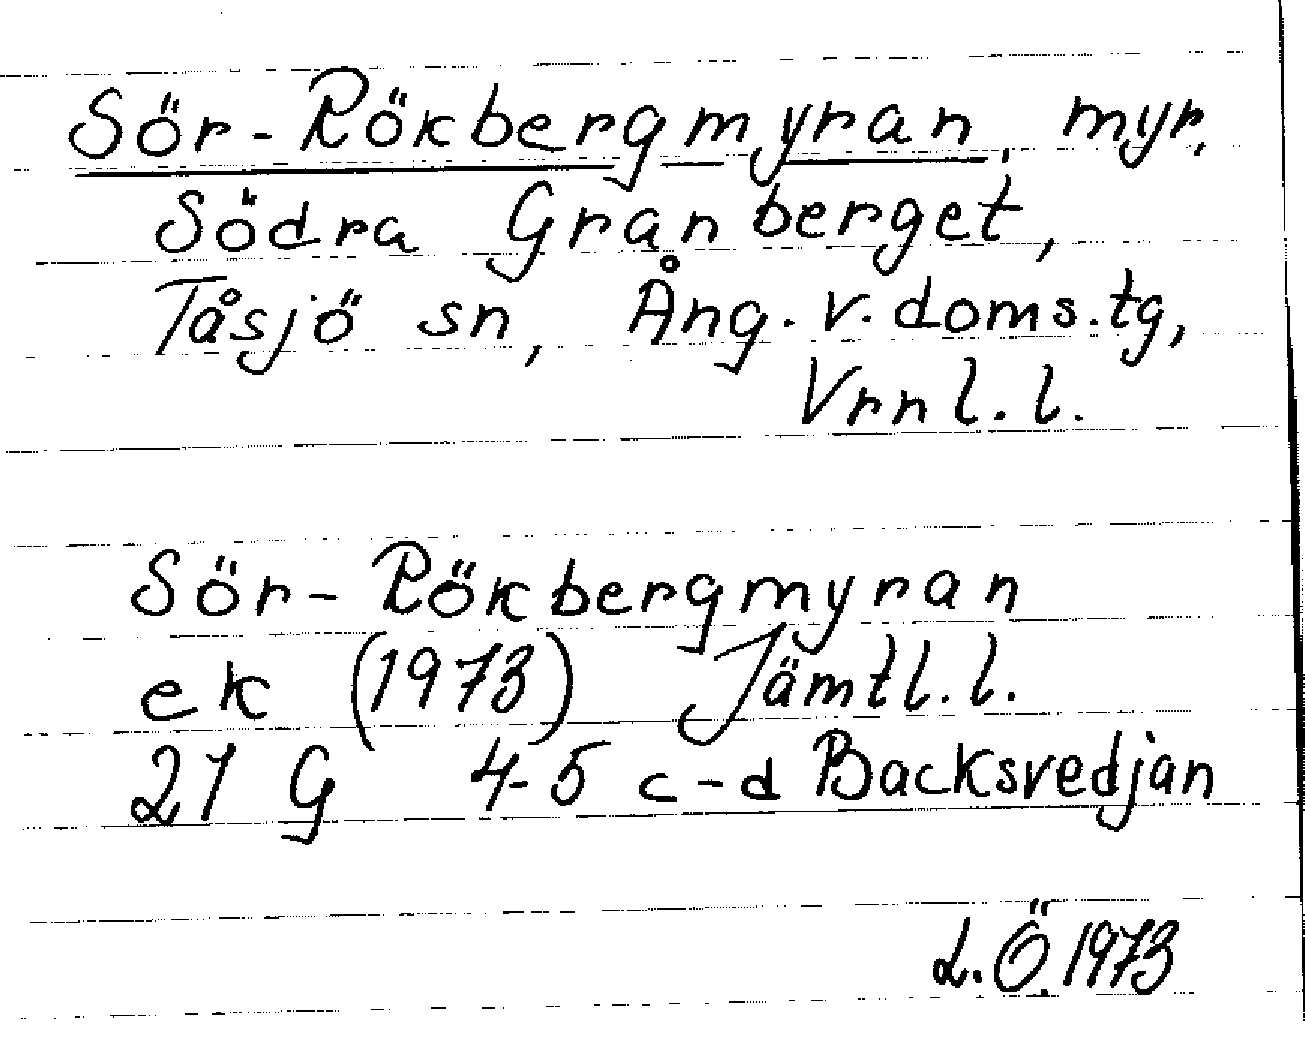 Sör-Rökbergmyran, myr,
Södra Granberget,
Tåsjö sn, Ång. v. doms.tg,
Vrnl. l.
Sör-Rökbergmyran
ek (1973) Jämtl. l.
21 G 4-5 c-d Backsvedjan
L.Ö. 1973